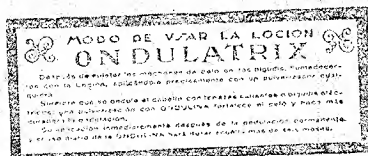 MODO DE USAR LA LOCION
ONDULATRIX
Después de sujetar los mechones de pelo en los bigudís, humedecer-
los con la Loción, aplicándola precisamente con un pulverizador cual-
quiera.
Siempre que se ondule el cabello con tenazas calientes o bigudís eléc-
tricos, una pulverización con ONDULINA fortalece el pelo y hace más
duradera la ondulación.
Su aplicación inmediatamente después de la ondulación permanente
y el uso diario de la ONDULINA hará durar el rizado más de seis meses.